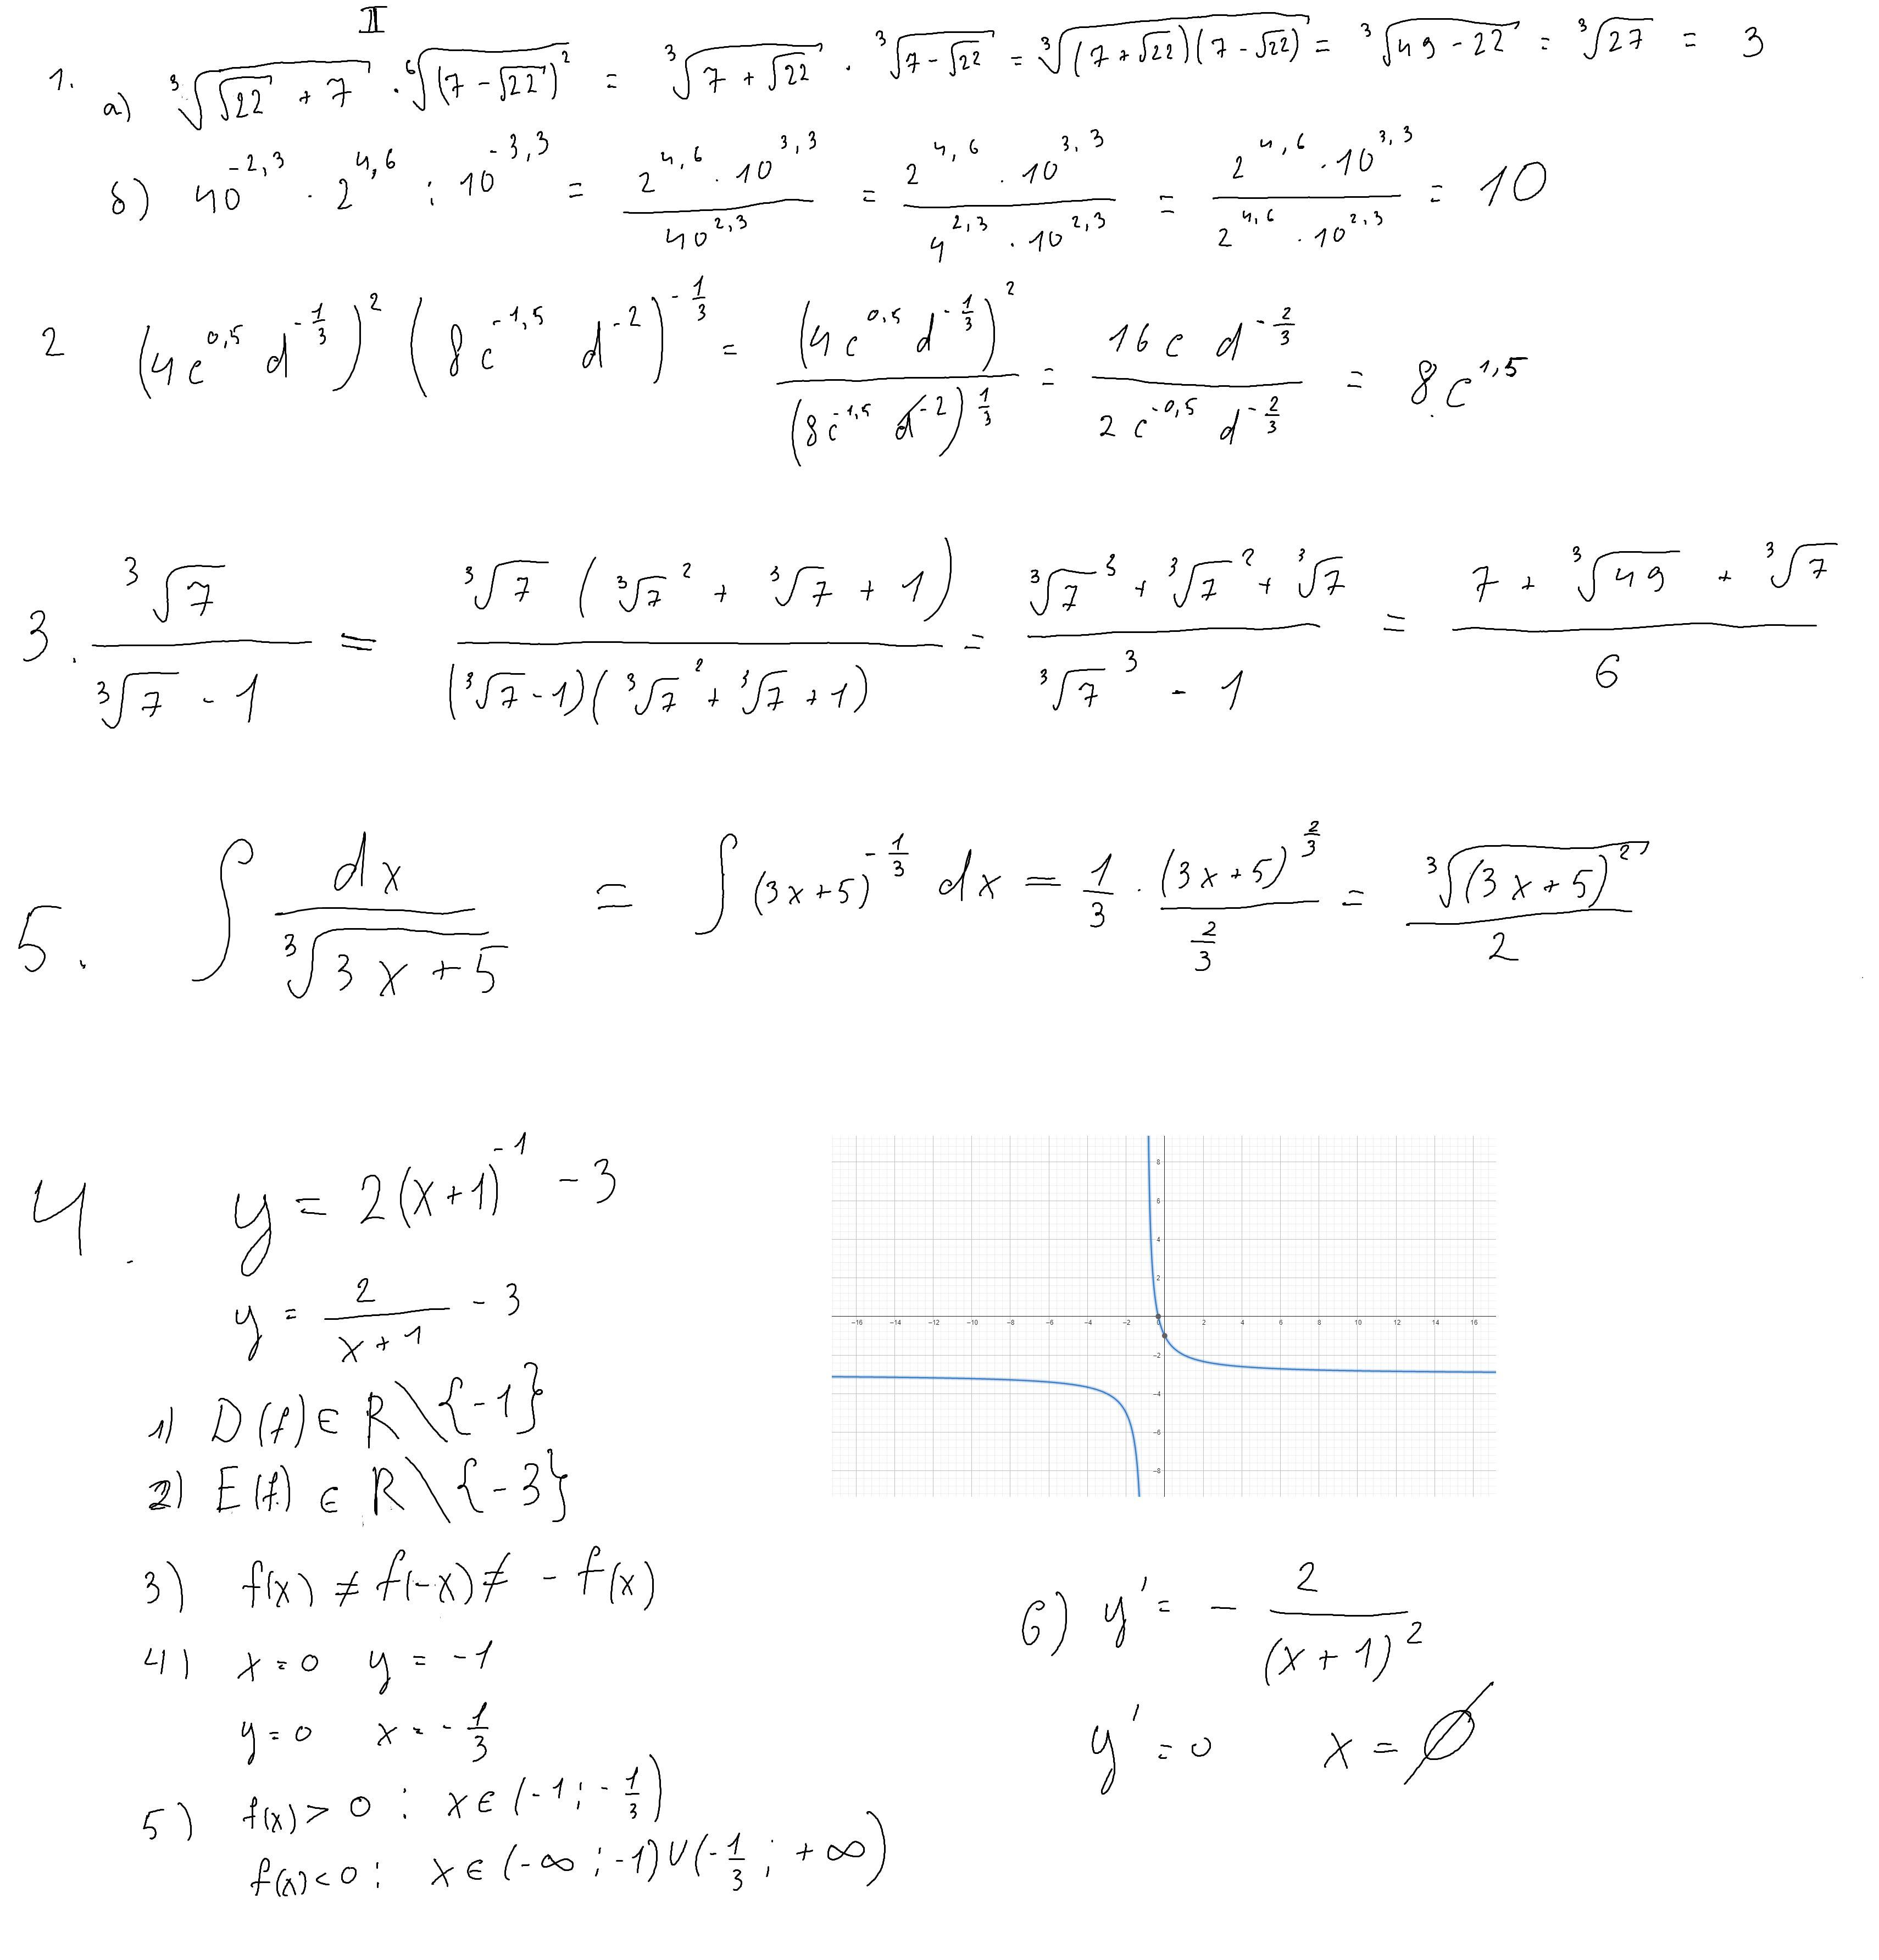 II
1.
а) ∛(√22 + 7) · ⁶√((7 - √22)²) = ∛(7 + √22) · ∛(7 - √22) = ∛((7 + √22)(7 - √22)) = ∛(49 - 22) = ∛27 = 3
б) 40^(-2,3) · 2^(4,6) : 10^(-3,3) = (2^(4,6) · 10^(3,3)) / 40^(2,3) = (2^(4,6) · 10^(3,3)) / (4^(2,3) · 10^(2,3)) = (2^(4,6) · 10^(3,3)) / (2^(4,6) · 10^(2,3)) = 10
2 (4c^(0,5) d^(-1/3))^2 (8c^(-1,5) d^(-2))^(-1/3) = (4c^(0,5) d^(-1/3))^2 / (8c^(-1,5) d^(-2))^(1/3) = (16c d^(-2/3)) / (2c^(-0,5) d^(-2/3)) = 8c^(1,5)
3. ∛7 / (∛7 - 1) = (∛7 (∛7² + ∛7 + 1)) / ((∛7 - 1)(∛7² + ∛7 + 1)) = (∛7³ + ∛7² + ∛7) / (∛7³ - 1) = (7 + ∛49 + ∛7) / 6
5. ∫ dx / ∛(3x + 5) = ∫ (3x+5)^(-1/3) dx = 1/3 · (3x+5)^(2/3) / (2/3) = ∛((3x+5)²) / 2
4. y = 2(x+1)^(-1) - 3
y = 2/(x+1) - 3
1) D(f) ∈ R\{-1}
2) E(f) ∈ R\{-3}
3) f(x) ≠ f(-x) ≠ - f(x)
4) x = 0 y = -1
y = 0 x = -1/3
5) f(x) > 0 : x ∈ (-1 ; -1/3)
f(x) < 0 : x ∈ (-∞ ; -1) ∪ (-1/3 ; +∞)
8
6
4
2
-16 -14 -12 -10 -8 -6 -4 -2 0 2 4 6 8 10 12 14 16
-2
-4
-6
-8
6) y' = - 2/(x+1)²
y' = 0 x = ∅